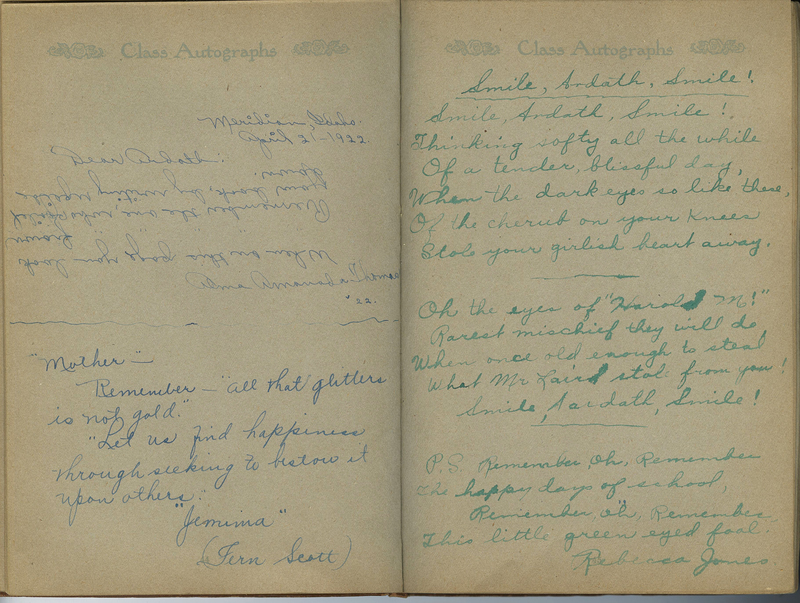 Class Autographs
Meridian, Idaho.
April 21-1922.
Dear Ardath:
When on this page you look
frown
Remember the one who spoiled
your book, by writing upside
down.
Alma Amanda Thomas
'22.
"Mother—
Remember— "all that glitters
is not gold."
"Let us find happiness
through seeking to bestow it
upon others."
"Jemima"
(Fern Scott)
Class Autographs
Smile, Ardath, Smile!
Smile, Ardath, Smile!
Thinking softy all the while
Of a tender, blissful day,
When the dark eyes so like these,
Of the cherub on your knees
Stole your girlish heart away.
Oh the eyes of "Harold M!"
Rarest mischief they will do,
When once old enough to steal
What Mr Laird stole from you!
Smile, Aardath, Smile!
P.S. Remember, Oh, Remember
The happy days of school,
Remember, Oh, Remember
This little green eyed fool.
Rebecca Jones